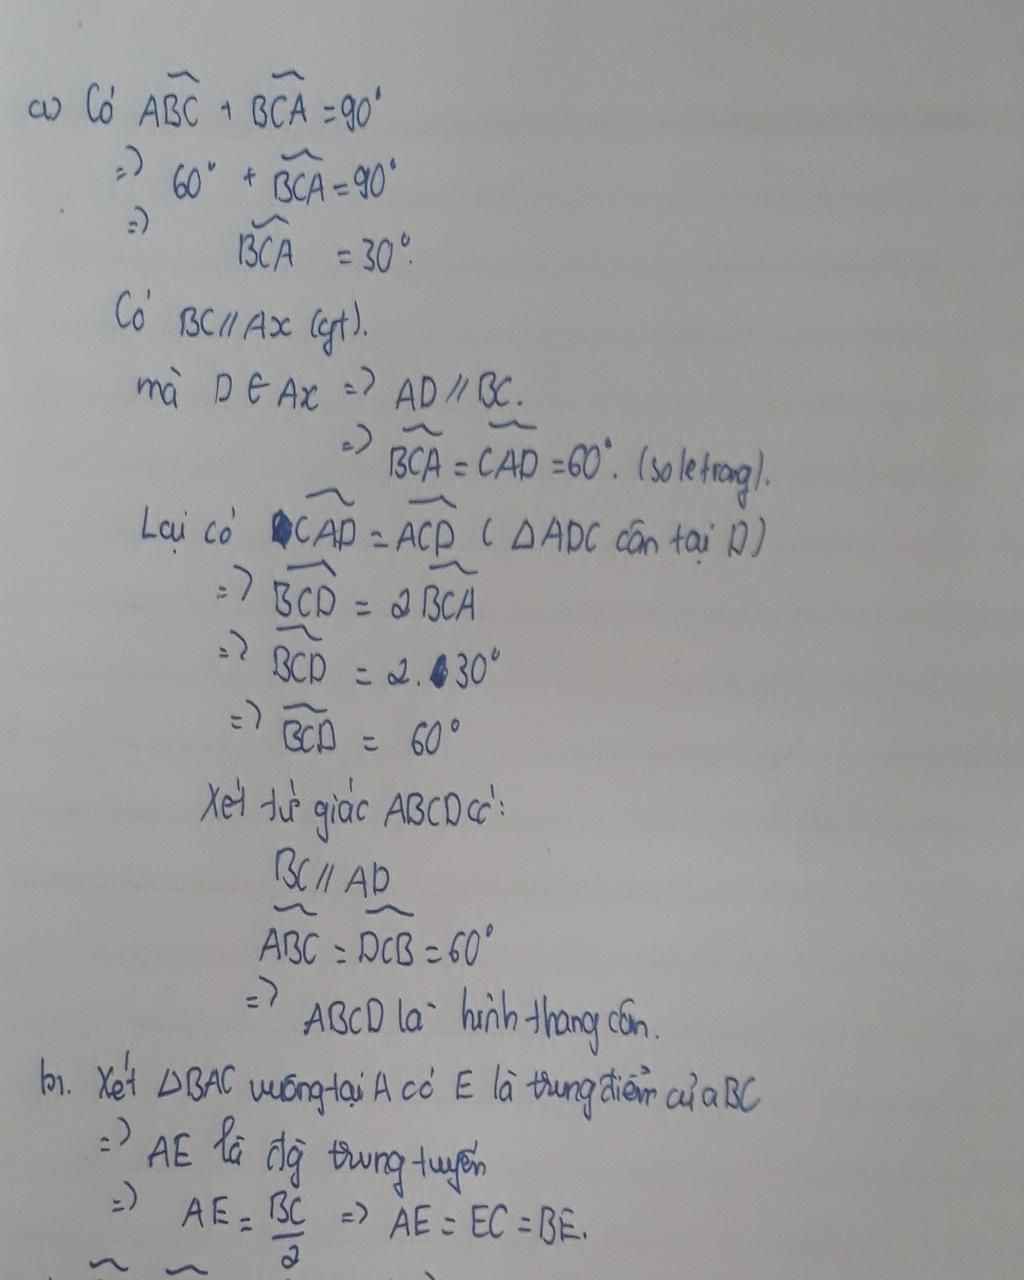 a) Có ABC + BCA = 90°
=> 60° + BCA = 90°
=> BCA = 30°.
Có BC // Ax (gt).
mà D ∈ Ax => AD // BC.
=> BCA = CAD = 60°. (so le trong).
Lại có CAD = ACD ( Δ ADC cân tại D)
=> BCD = 2 BCA
=> BCD = 2. 30°
=> BCD = 60°
Xét tứ giác ABCD có:
BC // AD
ABC = DCB = 60°
=> ABCD là hình thang cân.
b). Xét Δ BAC vuông tại A có E là trung điểm của BC
=> AE là đg trung tuyến
=> AE = BC/2 => AE = EC = BE.